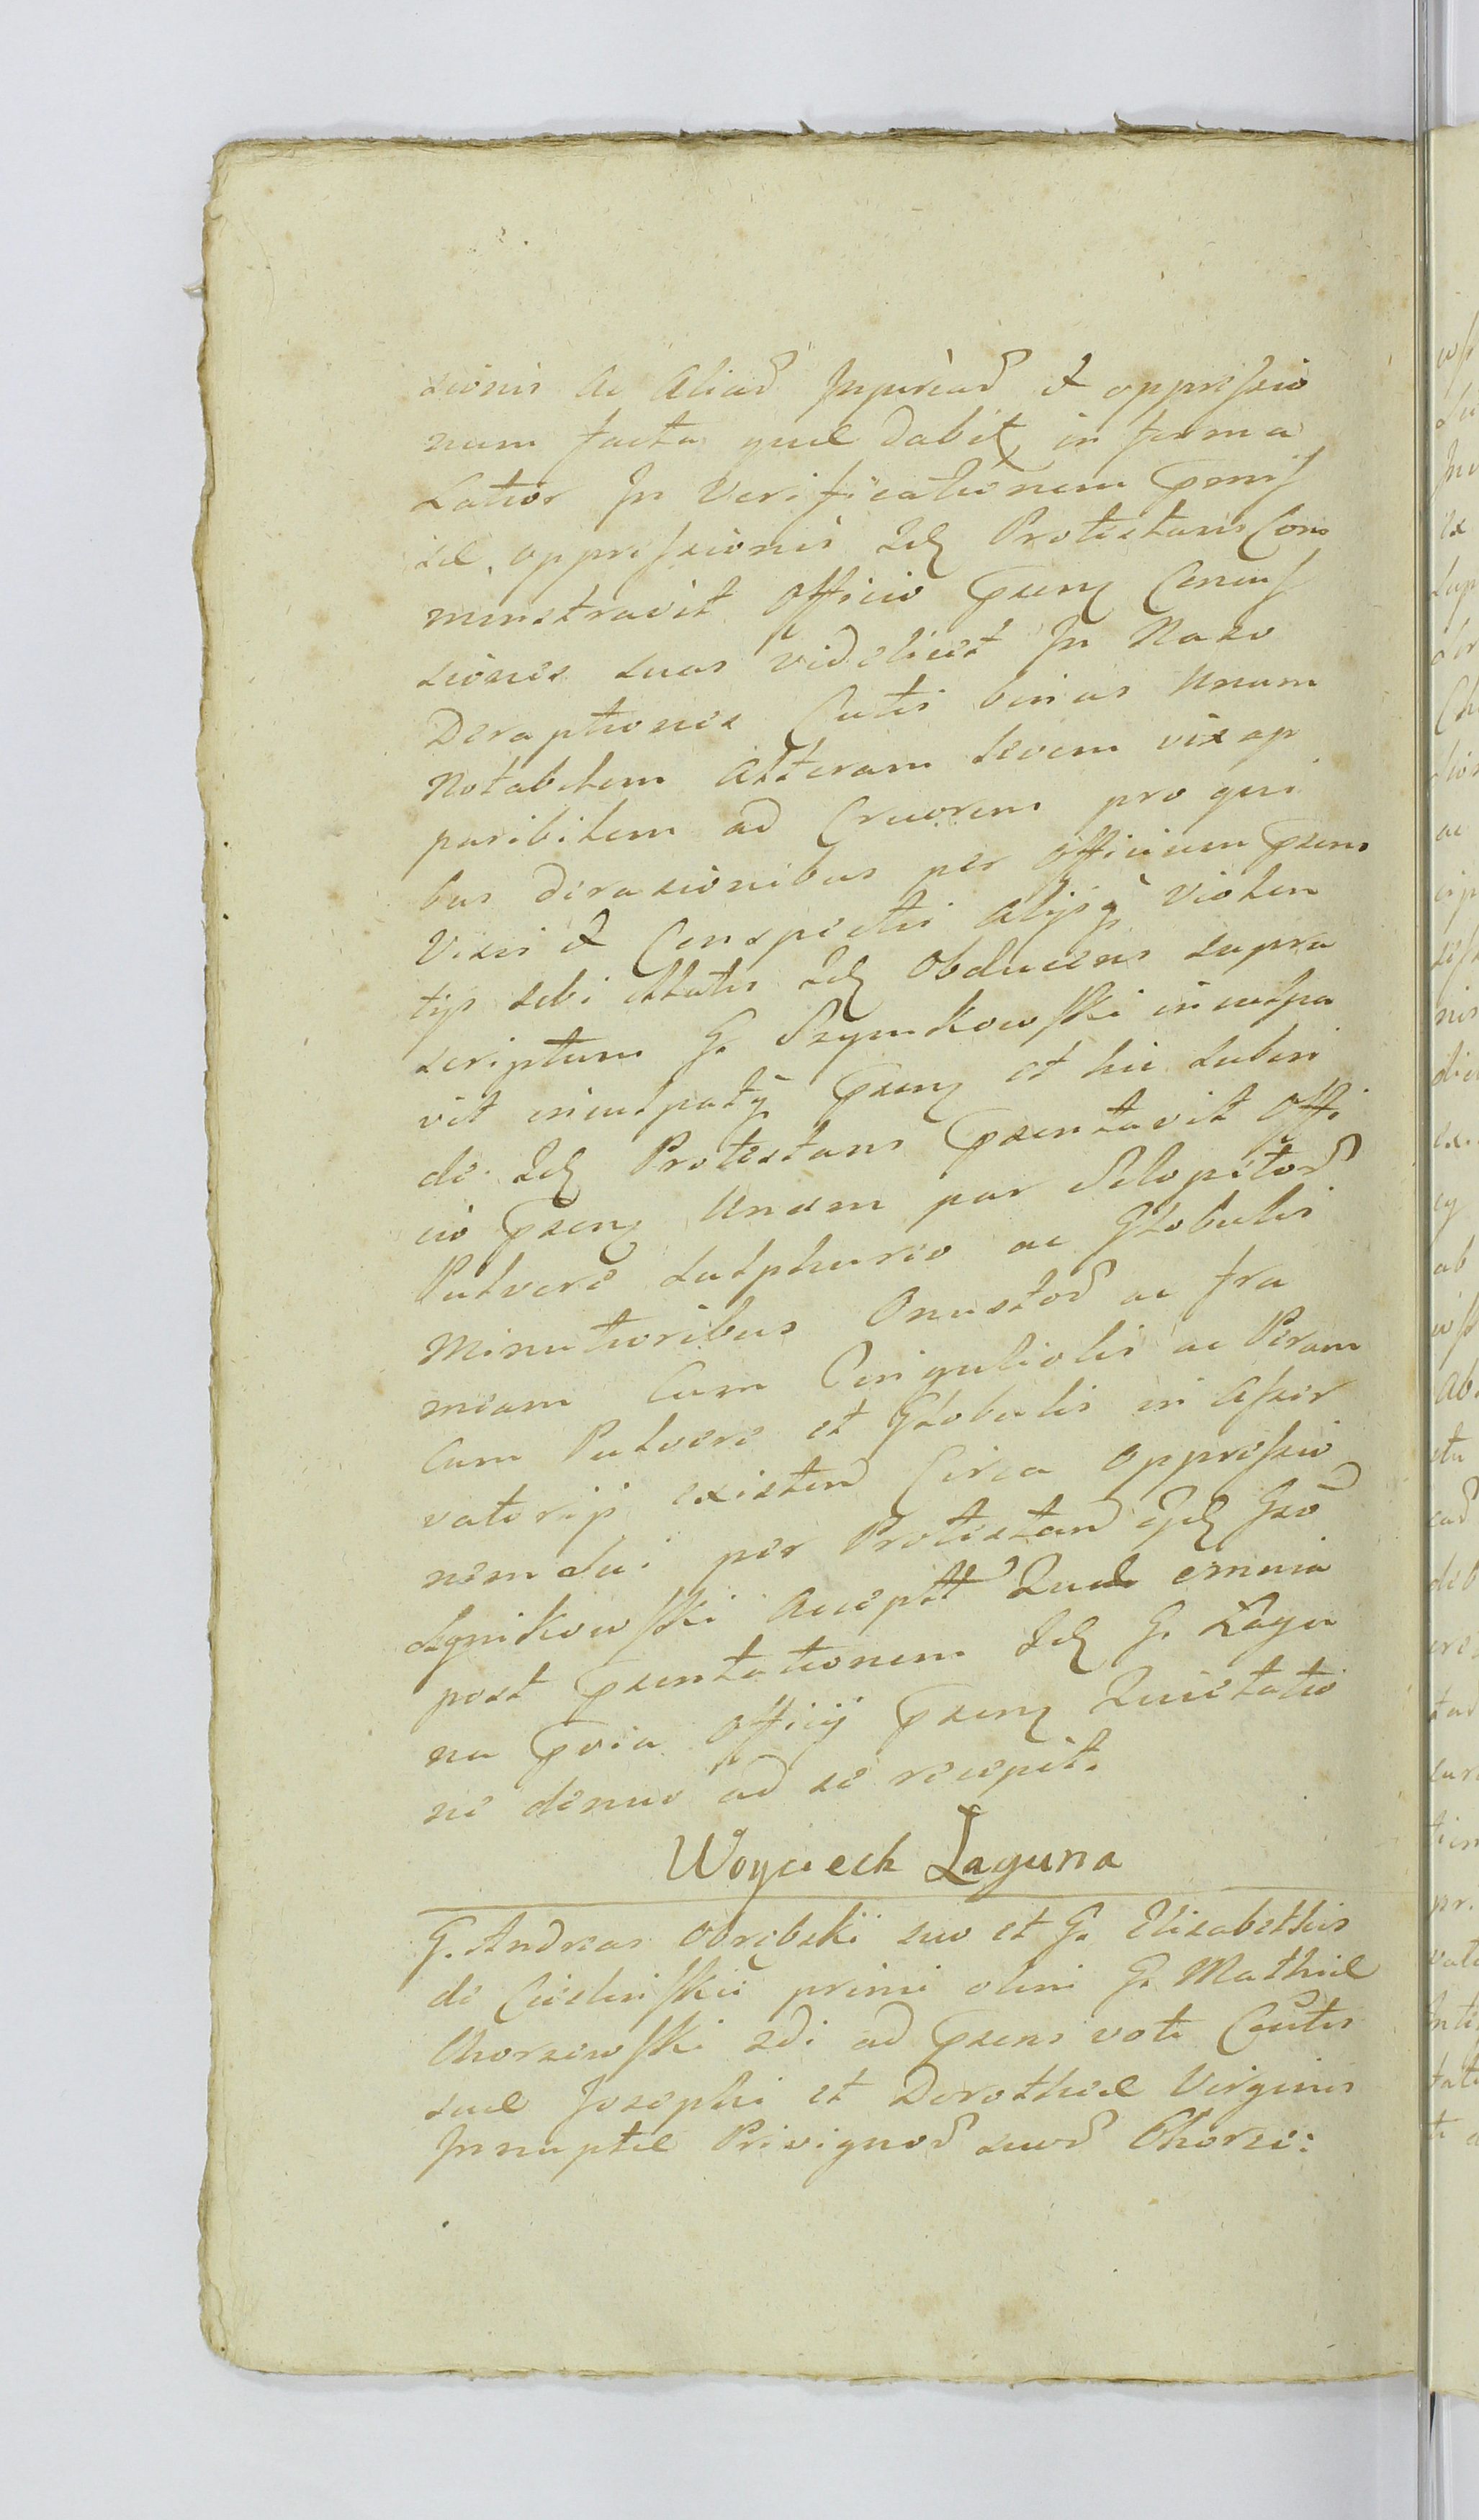 sionis ac aliar Injuriar et oppressio
num facta quae dabit in forma
Latior In Verificationem Pmis
sae oppressionis Idem Protestans Com
minstravit Officio Psenti Concus
siones suas videlicet In Naso
Deraptiones Cutis binas Unam
Notabilem alteram levem vix ap
paribilem ad Cruorem pro qui
bus Dirasionibus per Officium Psens
Visis et Conspectis alijsq Violen
tijs sibi illatis Idem Obducens supra
scriptum G. Szymkowski inculpa
vit inculpatq Psenti et hic Subin
de Idem Protestans Psentavit Offi
cio Psenti Unum par Sclopetor
Pulvere sulphureo ac Globulis
Minutioribus Onustor ac fra
meam Cum Cinguliolis ac Peram
Cum Pulvere et Globulis in asser
vatorijs existen Circa oppressio
nem sui per Protestan
post Psentationem Idem G. Lagu
na Pvia Officij Psenti Quietatio
ne denuo ad se recepit.
Woyciech Laguna
G. Andreas Obrębski suo et G. Elisabethis
de Cieslinskie primi olim G. Mathiae
Chorzewski 2di ad Psens voti Cons̃tis
suae Josephi et Dorotheae Virginis
Innuptae Privignor suor Chorze: